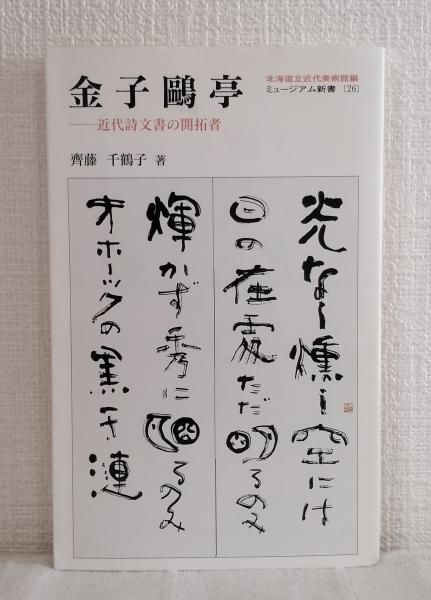 北海道立近代美術館編
ミュージアム新書〔26〕
金子鷗亭
——近代詩文書の開拓者
齊藤 千鶴子 著
光なし燻し空には
日の在處ただ明るのみ
輝かず秀に明るのみ
オホーツクの黒き漣